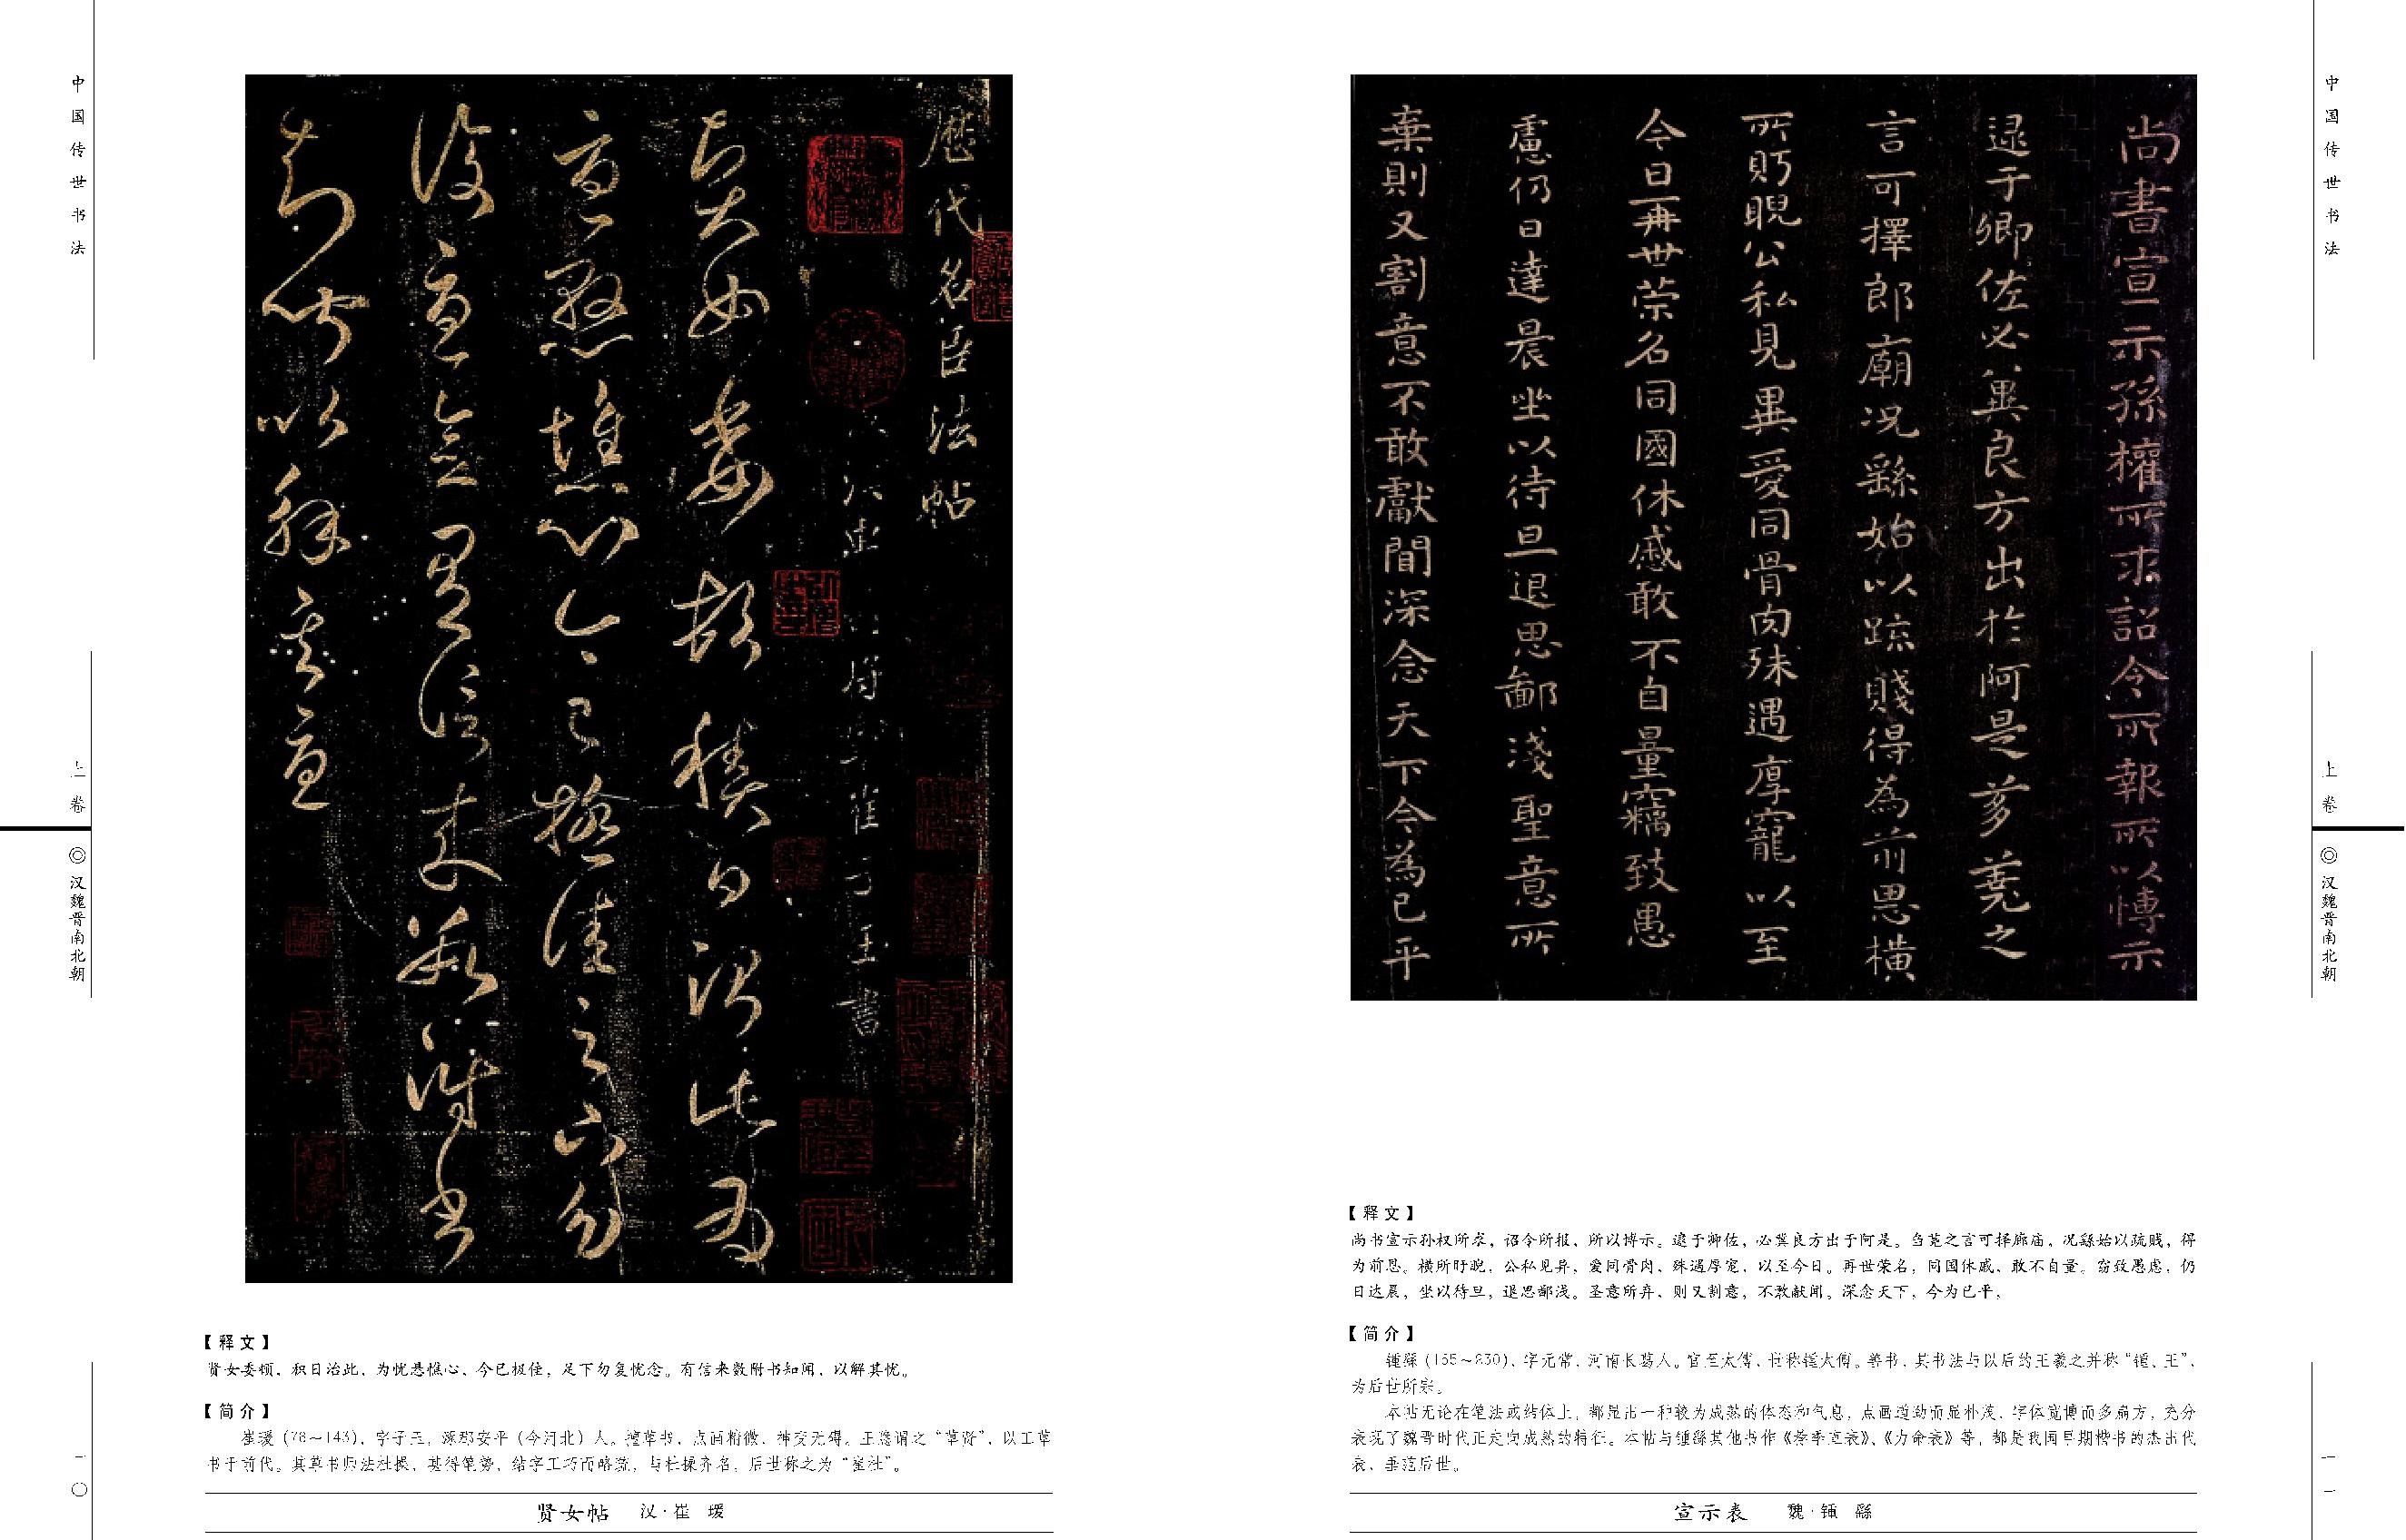 中国传世书法
上卷
◎汉魏晋南北朝
一〇
歷代名臣法帖
崔子玉書
賢女委頓積日治此為
憂懸憔心今已極佳足下勿
復憂念有信來數附書
知聞以解其憂
【释文】
贤女委顿，积日治此，为忧悬憔心，今已极佳，足下勿复忧念。有信来数附书知闻，以解其忧。
【简介】
崔瑗（78～143），字子玉，涿郡安平（今河北）人。擅草书，点画精微，神变无碍。王隐谓之“草贤”，以工草
书于前代。其草书师法杜操，甚得笔势，结字工巧而略疏，与杜操齐名，后世称之为“崔杜”。
贤女帖 汉·崔 瑗
尚書宣示孫權所求詔令所報所以博示
逮于卿佐必冀良方出於阿是芻蕘之
言可擇郎廟況繇始以疏賤得為前恩橫
所眄睨公私見異愛同骨肉殊遇厚寵以至
今日再世榮名同國休慼敢不自量竊致愚
慮仍日達晨坐以待旦退思鄙淺聖意所
棄則又割意不敢獻聞深念天下今為已平
【释文】
尚书宣示孙权所求，诏令所报，所以博示。逮于卿佐，必冀良方出于阿是。刍荛之言可择廊庙，况繇始以疏贱，得
为前恩。横所盱睨，公私见异，爱同骨肉，殊遇厚宠，以至今日。再世荣名，同国休戚，敢不自量。窃致愚虑，仍
日达晨，坐以待旦，退思鄙浅。圣意所弃，则又割意，不敢献闻。深念天下，今为已平，
【简介】
锺繇（155～230），字元常，河南长葛人。官至太傅，世称锺太傅。善书，其书法与以后的王羲之并称“锺、王”，
为后世所宗。
本帖无论在笔法或结体上，都显出一种较为成熟的体态和气息，点画遒劲而显朴茂，字体宽博而多扁方，充分
表现了魏晋时代正走向成熟的特征。本帖与锺繇其他书作《荐季直表》、《力命表》等，都是我国早期楷书的杰出代
表，垂范后世。
宣示表 魏·锺 繇
中国传世书法
上卷
◎汉魏晋南北朝
一一